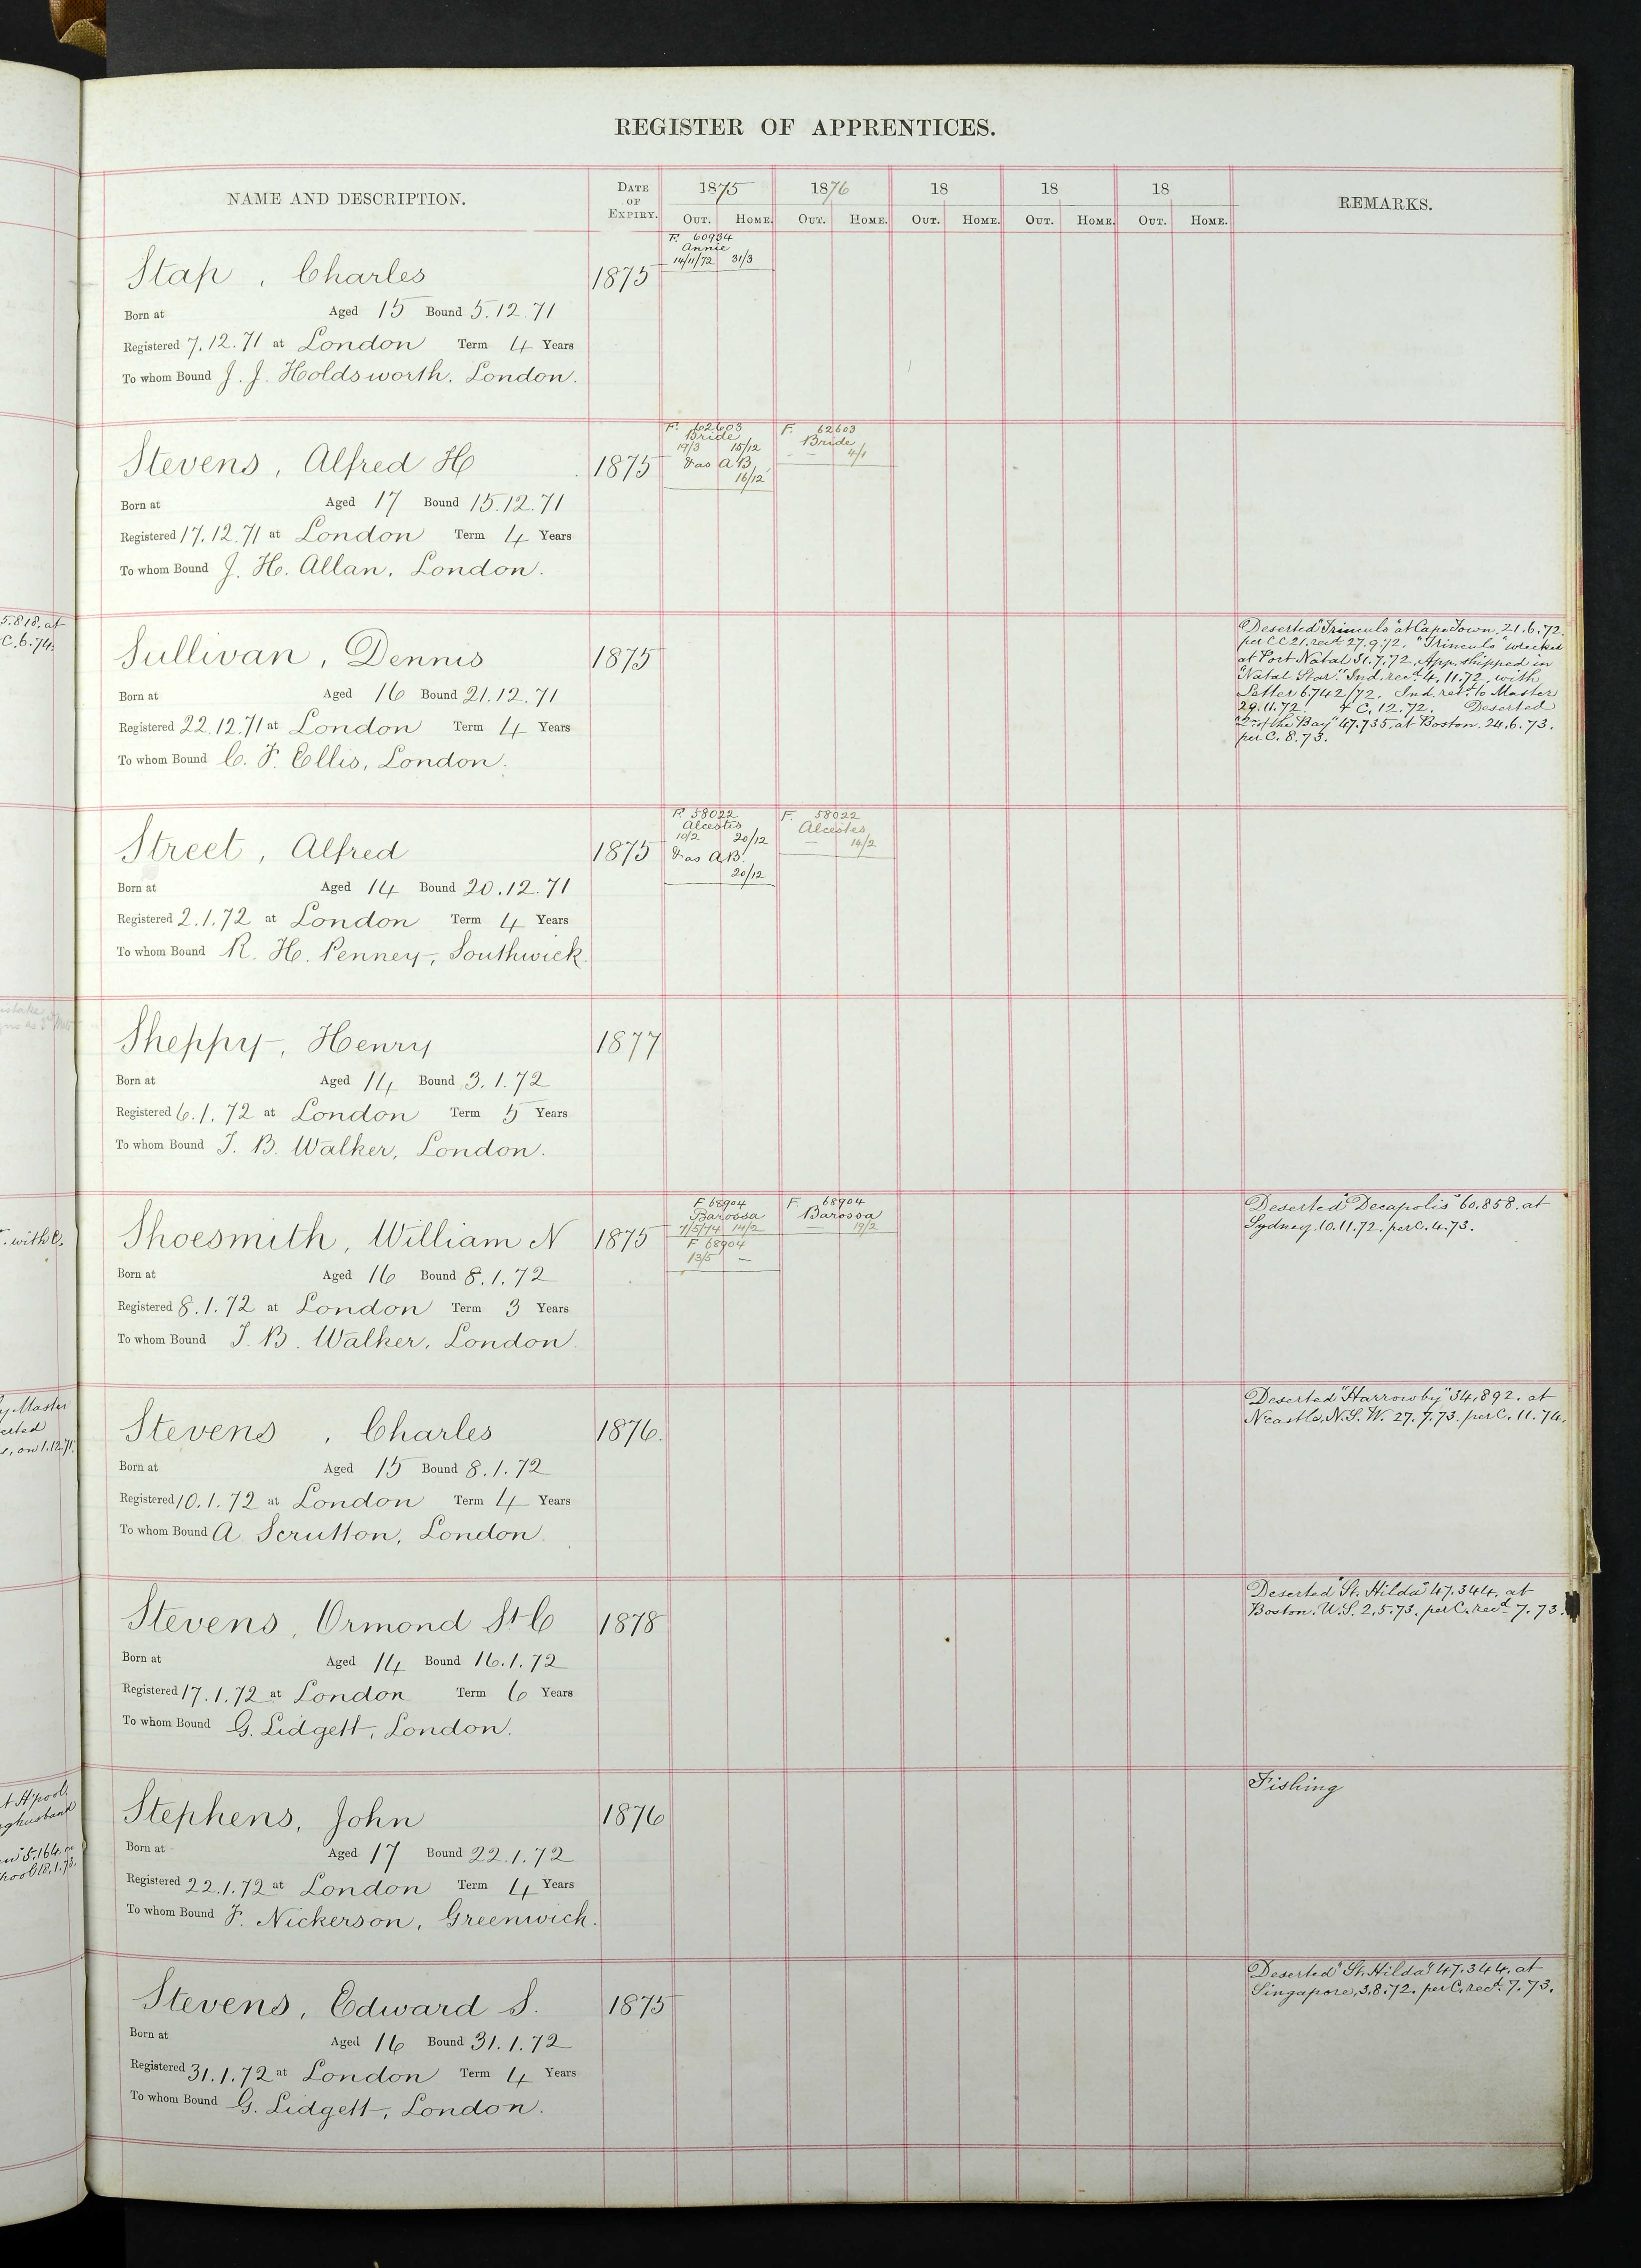 REGISTER OF APPRENTICES.
NAME AND DESCRIPTION. DATE OF EXPIRY. 1875 1876 18 18 18 REMARKS.
OUT. HOME. OUT. HOME. OUT. HOME. OUT. HOME. OUT. HOME.
F. 60934
Annie
14/11/72 31/3
Stap, Charles 1875
Born at Aged 15 Bound 5.12.71
Registered 7.12.71 at London Term 4 Years
To whom Bound J. J. Holdsworth. London.
F. 62603 F. 62603
Bride Bride
19/3 15/12 - - 4/1
& as A.B.
16/12
Stevens, Alfred H 1875
Born at Aged 17 Bound 15.12.71
Registered 17.12.71 at London Term 4 Years
To whom Bound J. H. Allan, London.
5.818. at
C. 6. 74.
Sullivan, Dennis 1875
Born at Aged 16 Bound 21.12.71
Registered 22.12.71 at London Term 4 Years
To whom Bound C. F. Ellis, London.
Deserted "Trinculo" at Cape Town, 21.6.72.
per CC 21. recd. 27.9.72. "Trinculo" wrecked
at Port Natal 31.7.72. App. shipped in
"Natal Star." Ind. recd. 4.11.72. with
Letter 6742/72. Ind. retd. to Master
29.11.72. C. 12.72. Deserted
of the Bay" 47.735, at Boston. 24.6.73.
per C. 8.73.
F. 58022 F. 58022
Alcestis Alcestes
10/2 20/12 - 14/2
& as A.B.
20/12
Street, Alfred 1875
Born at Aged 14 Bound 20.12.71
Registered 2.1.72 at London Term 4 Years
To whom Bound R. H. Penney, Southwick.
Sheppy, Henry 1877
Born at Aged 14 Bound 3.1.72
Registered 6.1.72 at London Term 5 Years
To whom Bound T. B. Walker, London.
F 68904 F. 68904
Barossa Barossa
7/5/74 14/2 - 19/2
F 68904
13/5 -
. with C.
Shoesmith, William N 1875
Born at Aged 16 Bound 8.1.72
Registered 8.1.72 at London Term 3 Years
To whom Bound T. B. Walker, London.
Deserted "Decapolis" 60.858. at
Sydney. 10.11.72. per C. 4.73.
Master
on 1.12.71.
Stevens, Charles 1876.
Born at Aged 15 Bound 8.1.72
Registered 10.1.72 at London Term 4 Years
To whom Bound A Scrutton, London.
Deserted "Harrowby" 34.892. at
Ncastle, N.S.W. 27.7.73. per C. 11.74.
Stevens, Ormond St C 1878
Born at Aged 14 Bound 16.1.72
Registered 17.1.72 at London Term 6 Years
To whom Bound G. Lidgett, London.
Deserted "St. Hilda" 47.344. at
Boston. U.S. 2.5.73. per C. recd. 7.73.
Stephens, John 1876
Born at Aged 17 Bound 22.1.72
Registered 22.1.72 at London Term 4 Years
To whom Bound F. Nickerson, Greenwich.
Fishing
Stevens, Edward S. 1875
Born at Aged 16 Bound 31.1.72
Registered 31.1.72 at London Term 4 Years
To whom Bound G. Lidgett, London.
Deserted "St. Hilda" 47.344. at
Singapore, 3.8.72. per C. recd. 7.73.